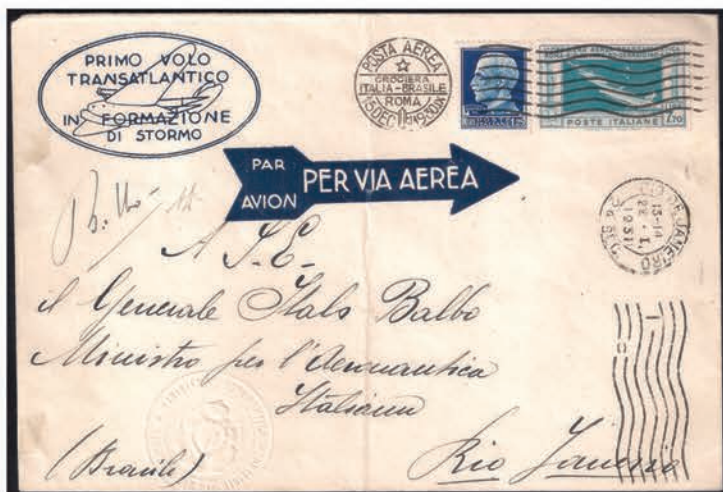 PRIMO VOLO
TRANSATLANTICO
IN FORMAZIONE
DI STORMO
POSTA AEREA
CROCIERA
ITALIA-BRASILE
ROMA
15 DEC
POSTE ITALIANE
L 7.70
PAR
AVION
PER VIA AEREA
RIO DE JANEIRO
13-14
1931
A S. E.
il Generale Italo Balbo
Ministro per l'Aeronautica
Italiana
(Brasile)
Rio Janeiro